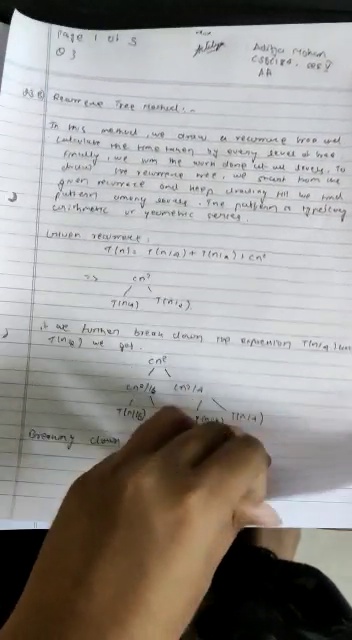 Page 1 of 5
Q3
Aditya Mohan
Recurrence Tree Method:-
In this method, we draw a recurrence tree and
calculate the time taken by every level of tree
Finally, we sum the work done at all levels. To
draw the recurrence tree, we start from the
given recurrence and keep drawing till we find
pattern among levels. The pattern is typically
arithmetic or geometric series.
Given recurrence,
T(n) = T(n/4) + T(n/2) + cn²
=> cn²
T(n/4) T(n/2)
If we further break down the expression T(n/4) and
T(n/2) we get.
cn²
cn²/16 cn²/4
T(n/16) T(n/4)
Breaking down